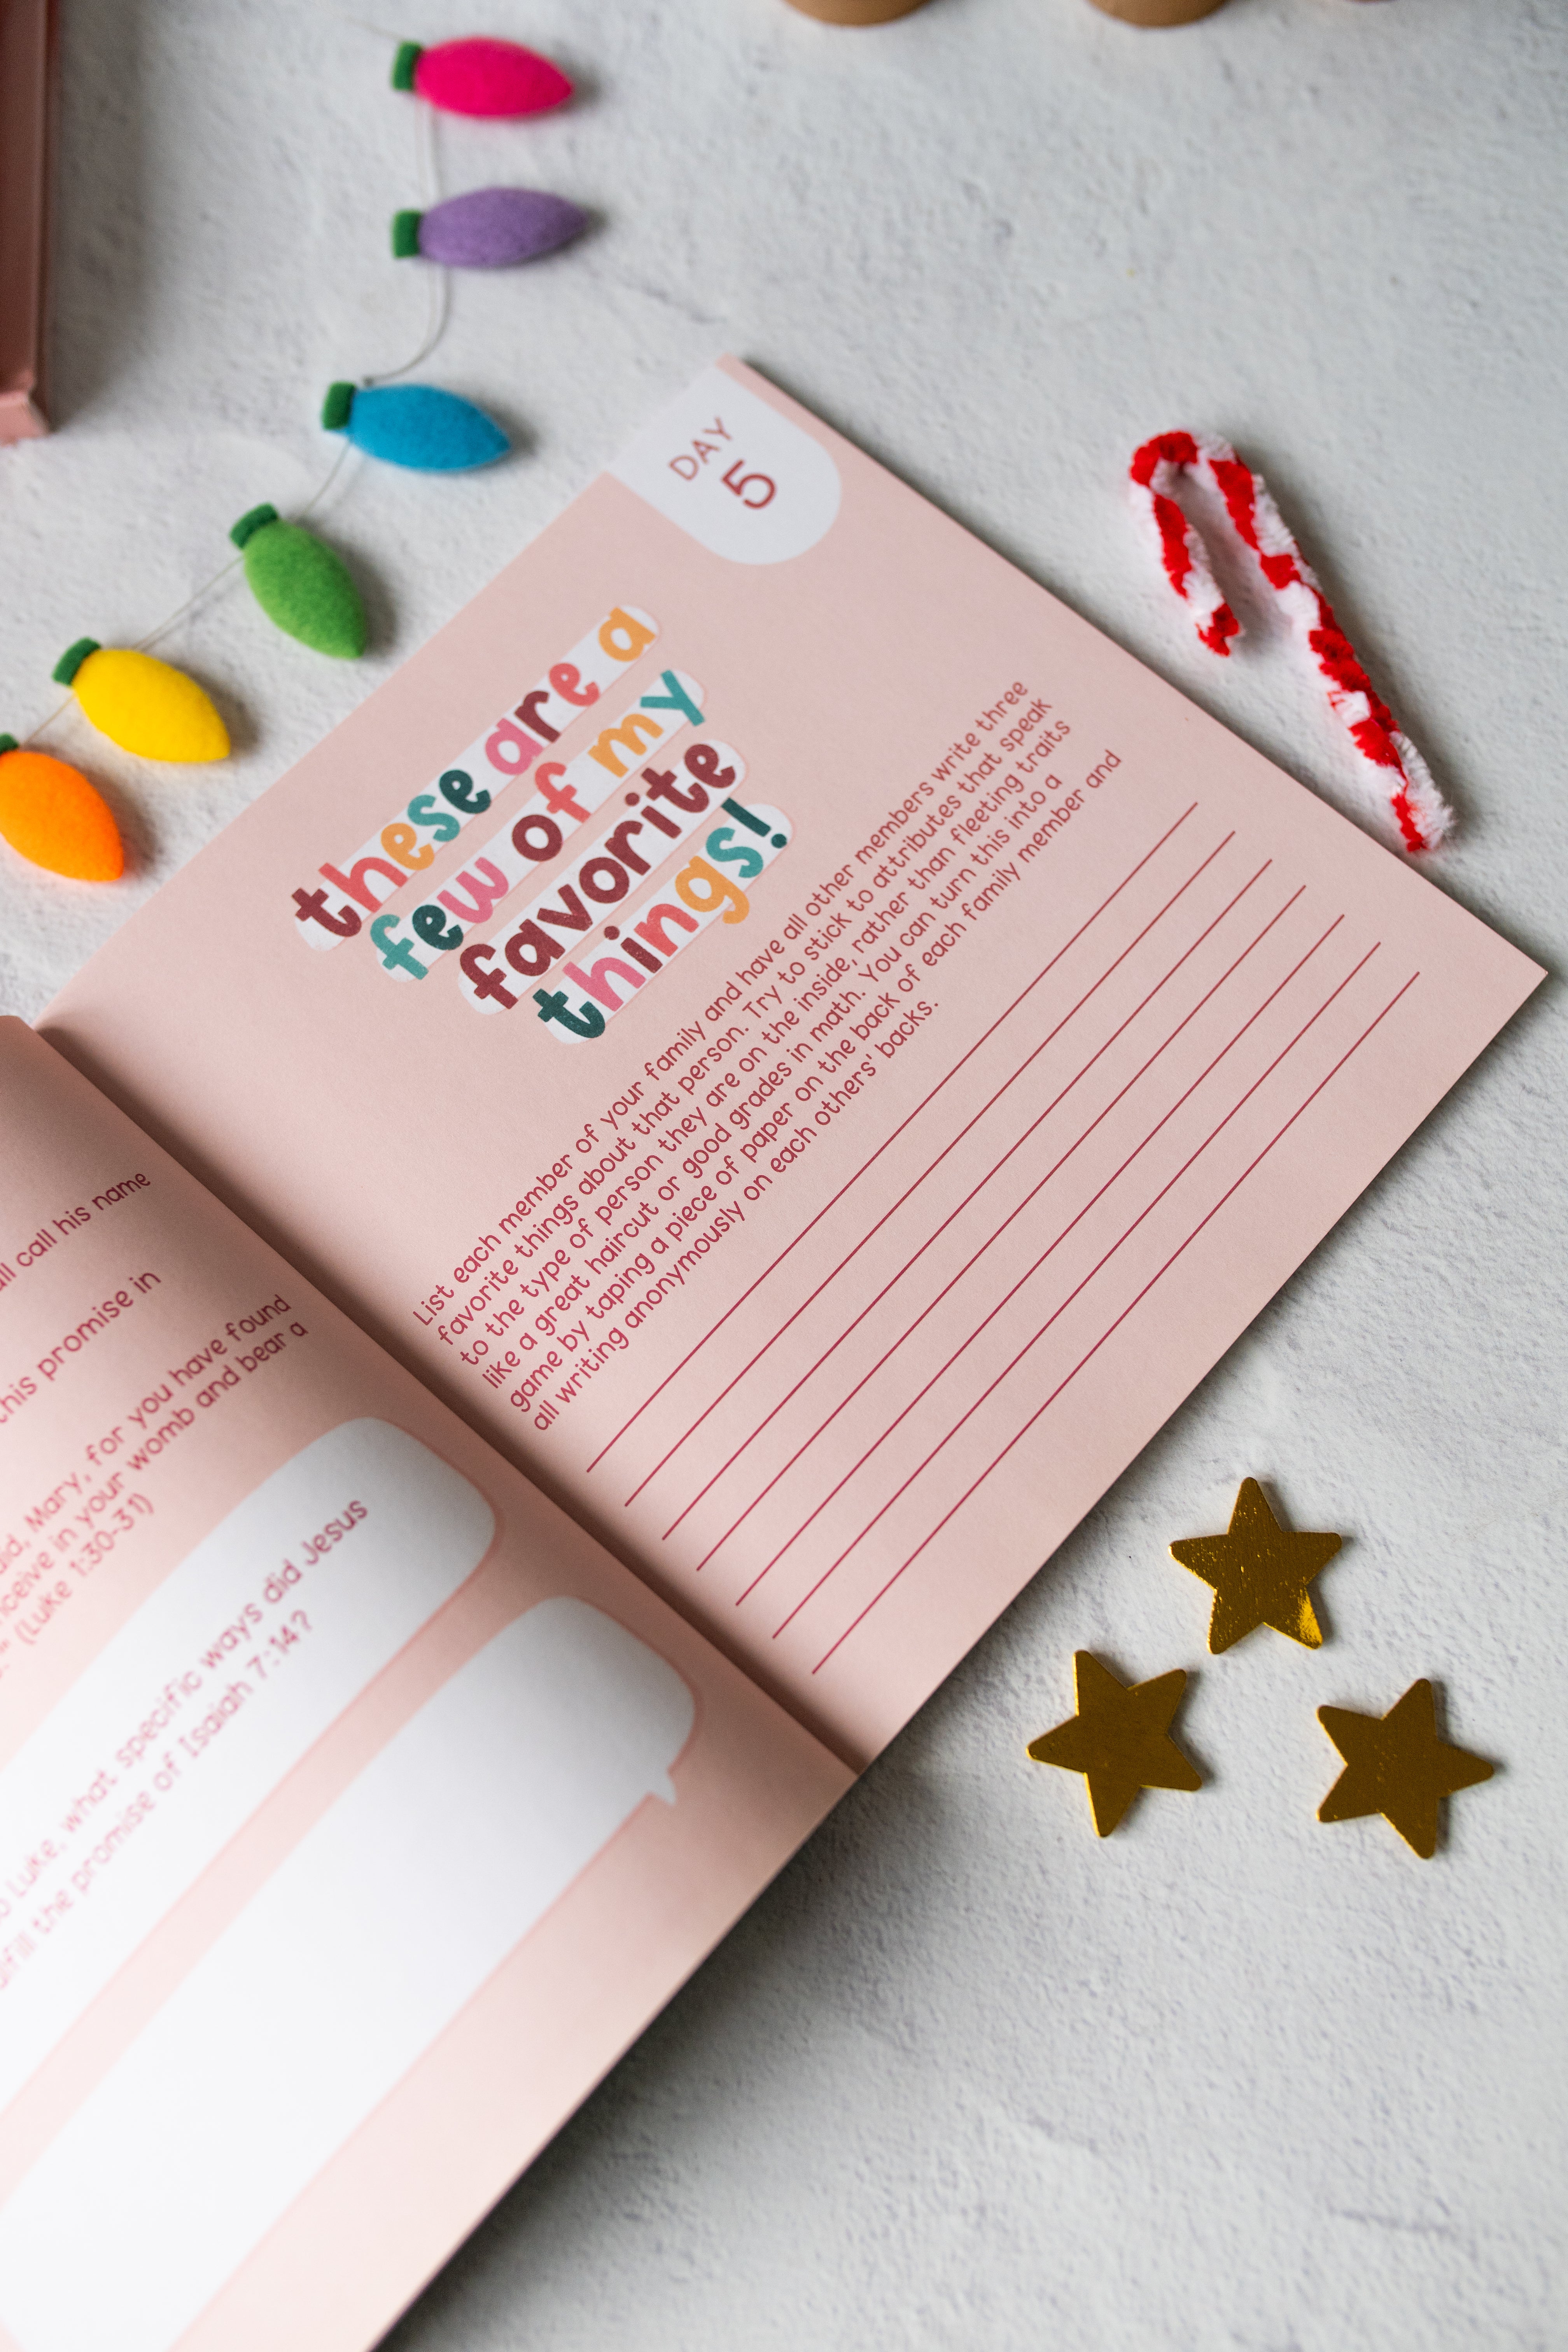 all call his name
this promise in
said, Mary, for you have found
conceive in your womb and bear a
(Luke 1:30-31)
to Luke, what specific ways did Jesus
fulfill the promise of Isaiah 7:14?
DAY
5
these are a
few of my
favorite
things!
List each member of your family and have all other members write three
favorite things about that person. Try to stick to attributes that speak
to the type of person they are on the inside, rather than fleeting traits
like a great haircut or good grades in math. You can turn this into a
game by taping a piece of paper on the back of each family member and
all writing anonymously on each others' backs.